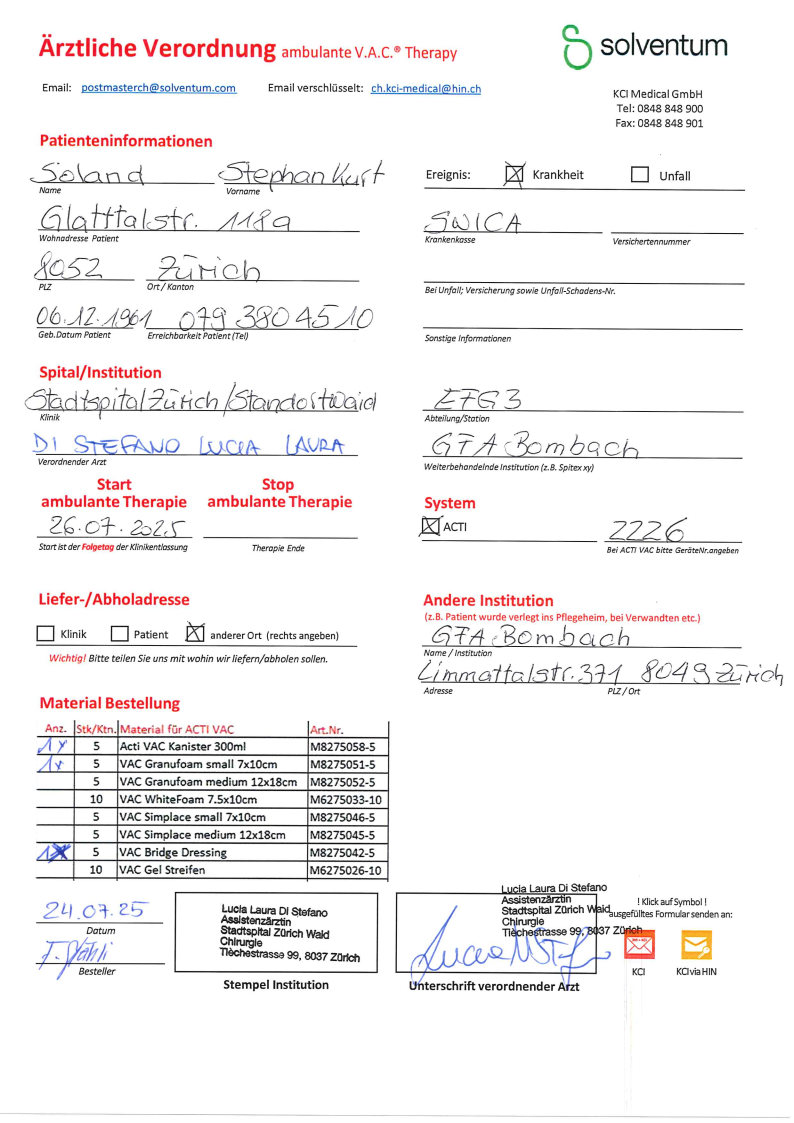 Ärztliche Verordnung ambulante V.A.C.® Therapy
solventum
Email: postmasterch@solventum.com Email verschlüsselt: ch.kci-medical@hin.ch
KCI Medical GmbH
Tel: 0848 848 900
Fax: 0848 848 901
Patienteninformationen
Soland Stephan Kurt
Name Vorname
Ereignis: Krankheit Unfall
Glatttalstr. 118a
Wohnadresse Patient
SWICA
Krankenkasse Versichertennummer
8052 Zürich
PLZ Ort / Kanton
Bei Unfall; Versicherung sowie Unfall-Schadens-Nr.
06.12.1961 079 380 45 10
Geb.Datum Patient Erreichbarkeit Patient (Tel)
Sonstige Informationen
Spital/Institution
Stadtspital Zürich/Standort Waid
Klinik
ETG 3
Abteilung/Station
DI STEFANO LUCIA LAURA
Verordnender Arzt
GFA Bombach
Weiterbehandelnde Institution (z.B. Spitex xy)
Start ambulante Therapie
Stop ambulante Therapie
26.07.2025
Start ist der Folgetag der Klinikentlassung
Therapie Ende
System
ACTI 2226
Bei ACTI VAC bitte GeräteNr.angeben
Liefer-/Abholadresse
Klinik Patient anderer Ort (rechts angeben)
Wichtig! Bitte teilen Sie uns mit wohin wir liefern/abholen sollen.
Andere Institution
(z.B. Patient wurde verlegt ins Pflegeheim, bei Verwandten etc.)
GFA Bombach
Name / Institution
Limmattalstr. 371 8049 Zürich
Adresse PLZ / Ort
Material Bestellung
Anz. Stk/Ktn. Material für ACTI VAC Art.Nr.
1x 5 Acti VAC Kanister 300ml M8275058-5
1x 5 VAC Granufoam small 7x10cm M8275051-5
5 VAC Granufoam medium 12x18cm M8275052-5
10 VAC WhiteFoam 7.5x10cm M6275033-10
5 VAC Simplace small 7x10cm M8275046-5
5 VAC Simplace medium 12x18cm M8275045-5
1x 5 VAC Bridge Dressing M8275042-5
10 VAC Gel Streifen M6275026-10
24.07.25
Datum
Besteller
Lucia Laura Di Stefano
Assistenzärztin
Stadtspital Zürich Waid
Chirurgie
Tièchestrasse 99, 8037 Zürich
Stempel Institution
Lucia Laura Di Stefano
Assistenzärztin
Stadtspital Zürich Waid
Chirurgie
Tièchestrasse 99, 8037 Zürich
Unterschrift verordnender Arzt
! Klick auf Symbol !
ausgefülltes Formular senden an:
KCI KCI via HIN